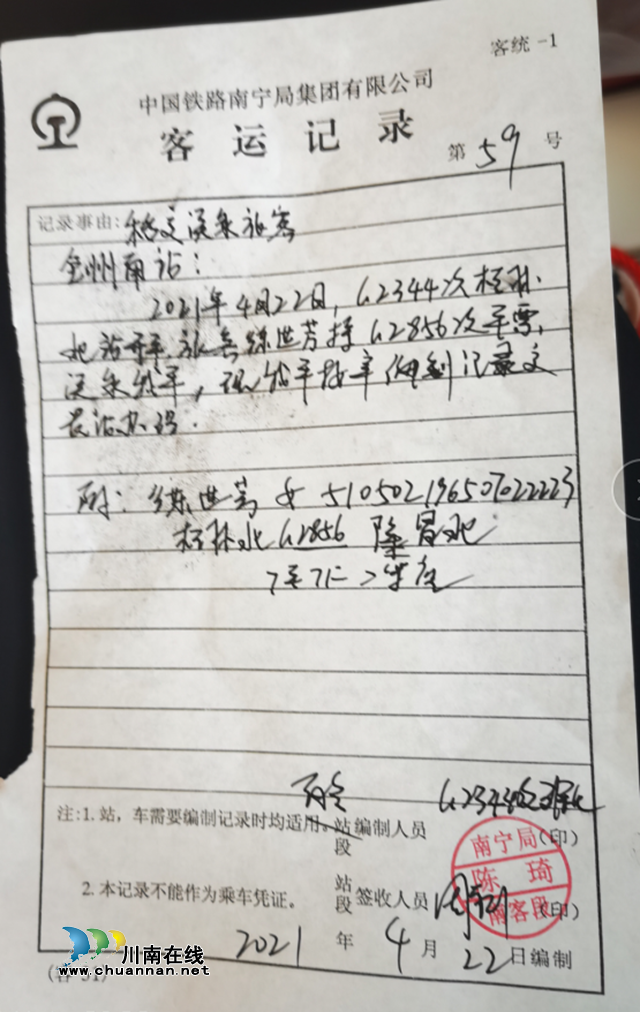 客统-1
中国铁路南宁局集团有限公司
客运记录
第59号
记录事由: 移交误乘旅客
全州南站:
2021年4月22日,G2344次桂林
北站开车,旅客练世芳持G2856次车票,
误乘我车,现
贵站办理.
附: 练世芳 女 510502196507022223
桂林北 G2856 隆昌北
二等座
G2344次
注:1. 站,车需要编制记录时均适用。站段编制人员(印)
2. 本记录不能作为乘车凭证。站段签收人员(印)
南宁局
陈琦
南客段
2021年4月22日编制
川南在线
www.chuannan.net